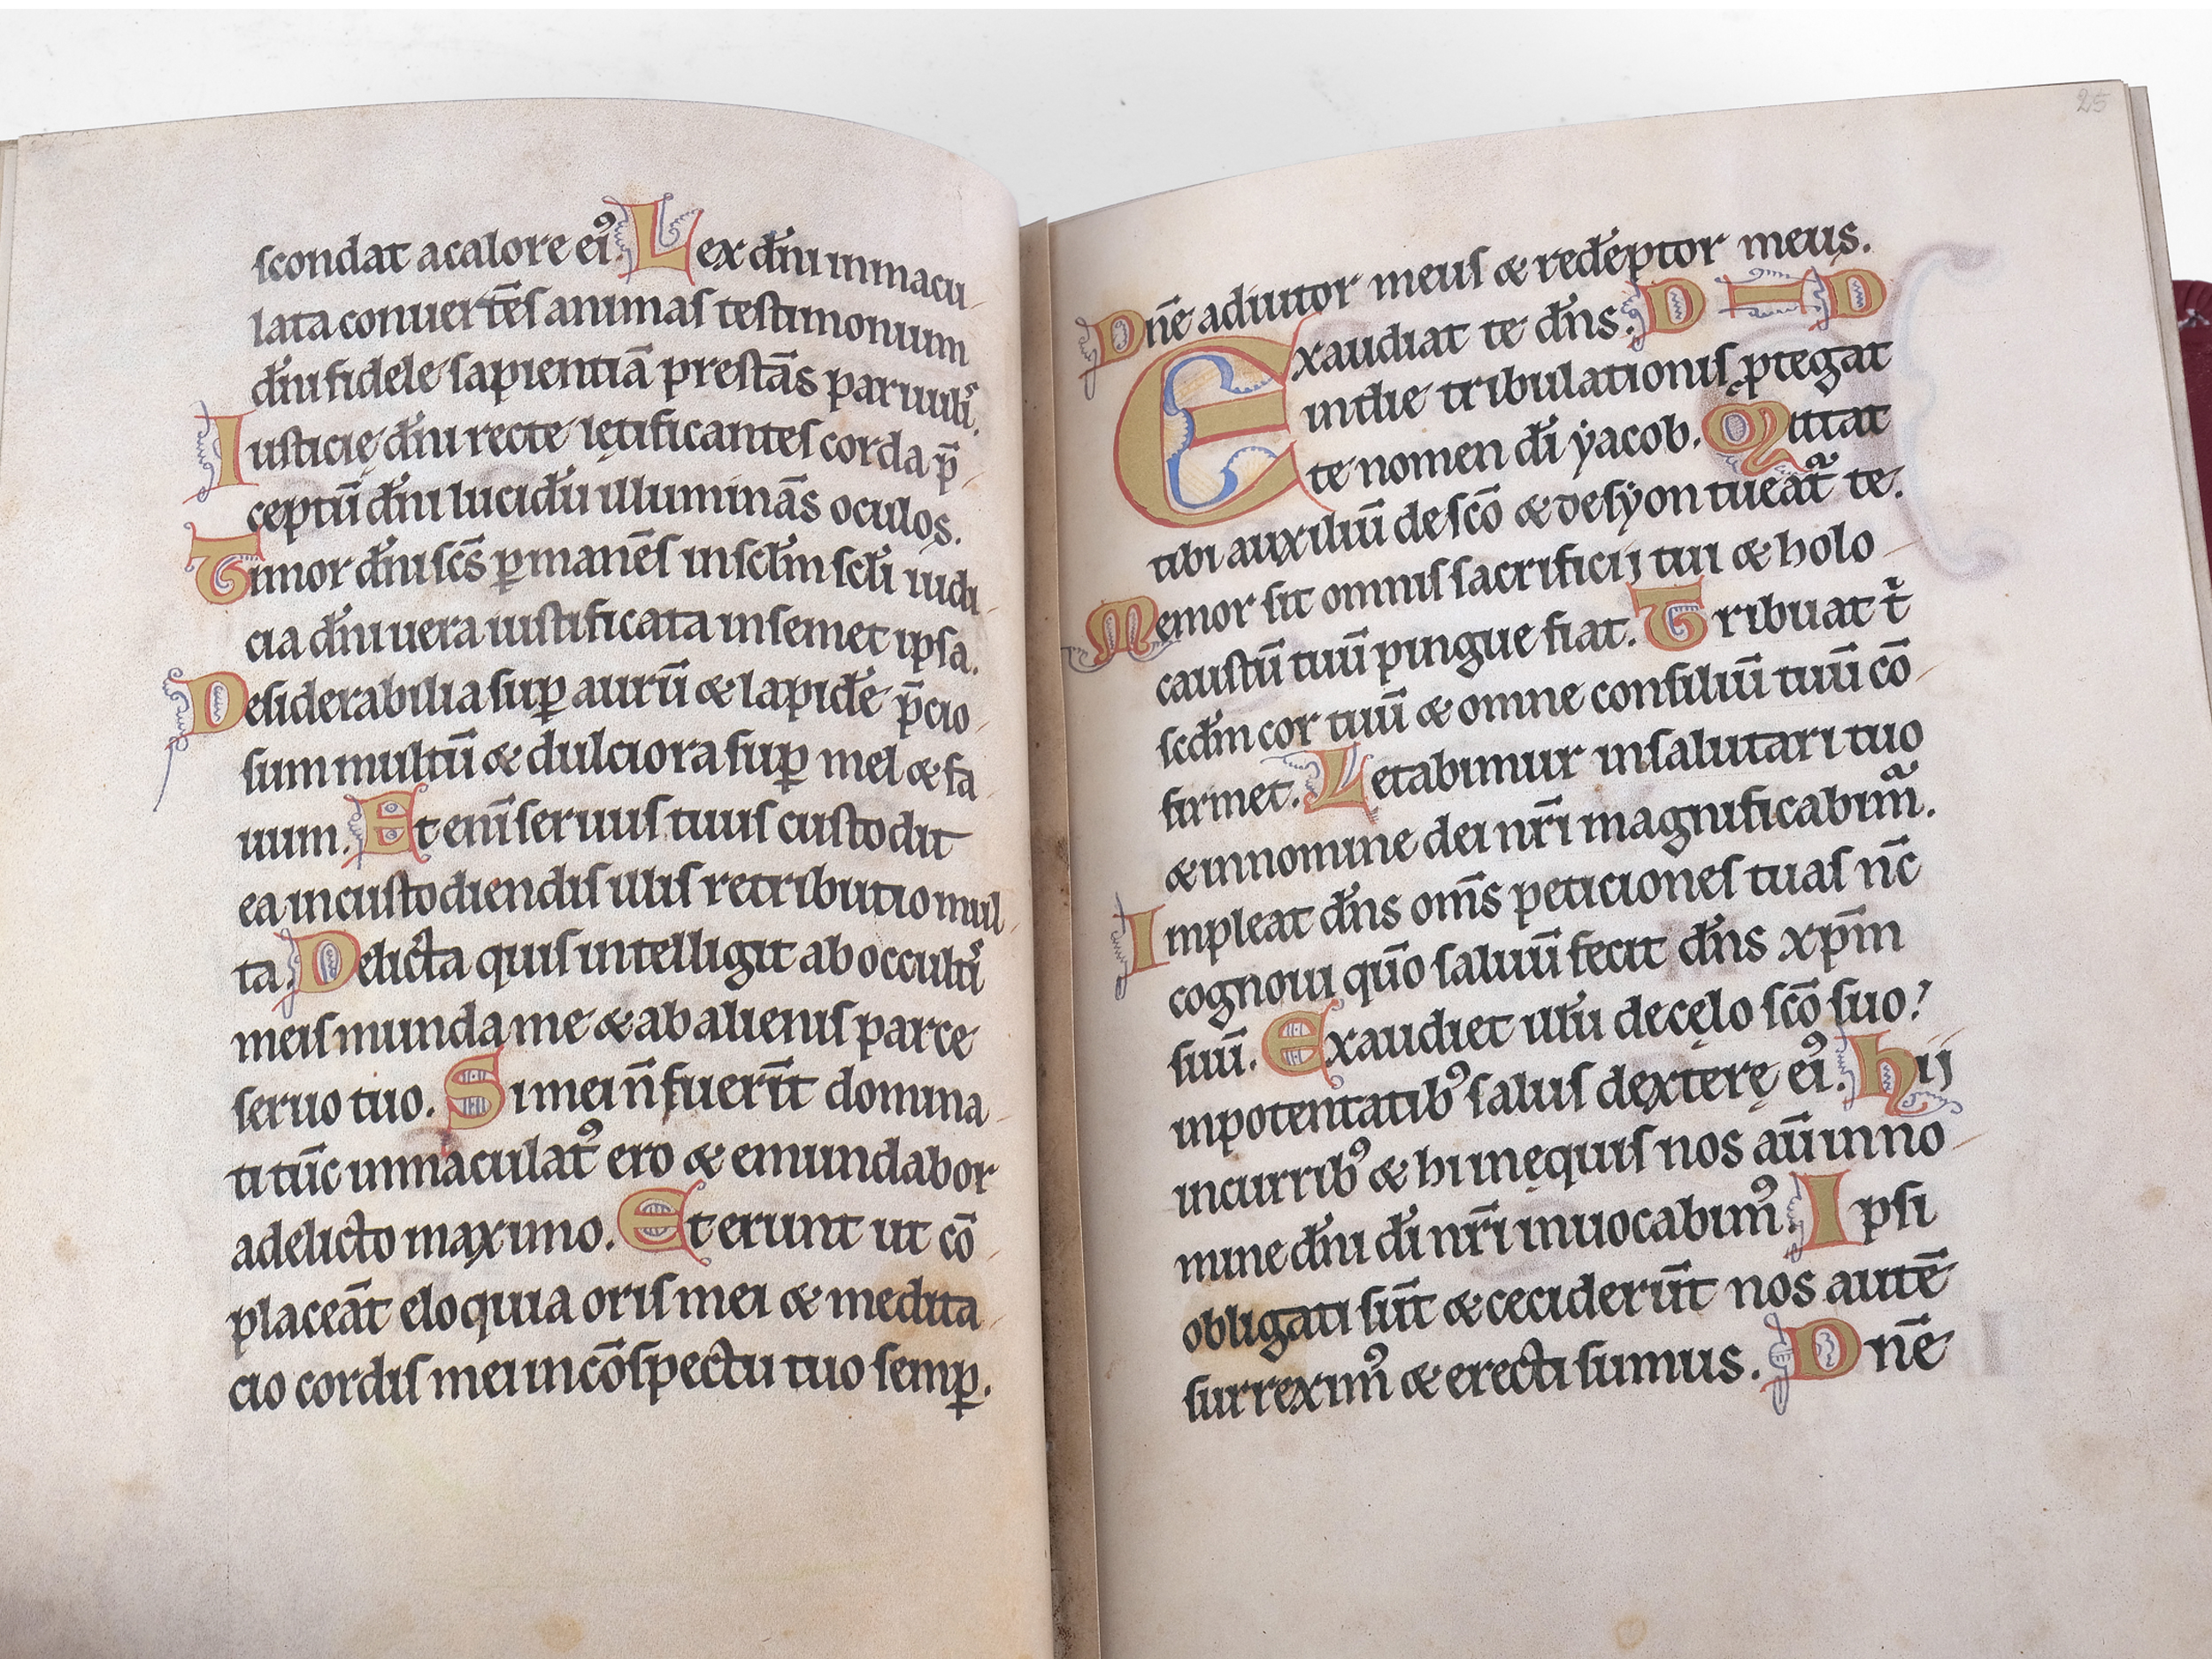 scondat acalore ei⁹. Lex dn̄i inmacu
lata conuertēs animas testimonium
dn̄i fidele sapientiā prestās paruulis.
Iusticię dn̄i recte lętificantes corda p̄
ceptū dn̄i lucidū illuminās oculos.
Timor dn̄i scs̄ ꝑmanēs insclm̄ scl̄i iudi
cia dn̄i uera iustificata insemet ipsa.
Desiderabilia suꝑ aurū & lapidē p̄cio
sum multū & dulciora suꝑ mel & fa
uum. Et eni̅ seruus tuus custodit
ea incustodiendis illis retributio mul
ta. Delicta quis intelligit ab occultis
meis munda me & ab alienis parce
seruo tuo. Si mei n̄ fueri̅t domina
ti tūc inmaculat⁹ ero & emundabor
adelicto maximo. Et erunt ut cō
placeāt eloquia oris mei & medita
cio cordis mei incōspectu tuo semꝑ.
25
Dn̄e adiutor meus & redēptor meus.
Exaudiat te dn̄s. D I D
indie tribulationis ꝓtegat
te nomen dī ẏacob. Mittat
tibi auxiliū desc̄o & desẏon tueat᷑ te.
Memor sit omnis sacrificij tui & holo
caustū tuū pingue fiat. Tribuat t̄
scd̄m cor tuū & omne consiliū tuū cō
firmet. Letabimur insalutari tuo
& innomine dei nr̄i magnificabim᷑.
Impleat dn̄s om̄s peticiones tuas nc̄
cognoui qūo saluū fecit dn̄s xp̄m
suū. Exaudiet illū decęlo sc̄o suo!
inpotentatib⁹ salus dexterę ei⁹. hij
incurrib⁹ & hi inequis nos aū inno
mine dn̄i dī nr̄i inuocabim⁹. Ipsi
obligati sūt & cecideru̅t nos autē
surrexim⁹ & erecti sumus. Dn̄e